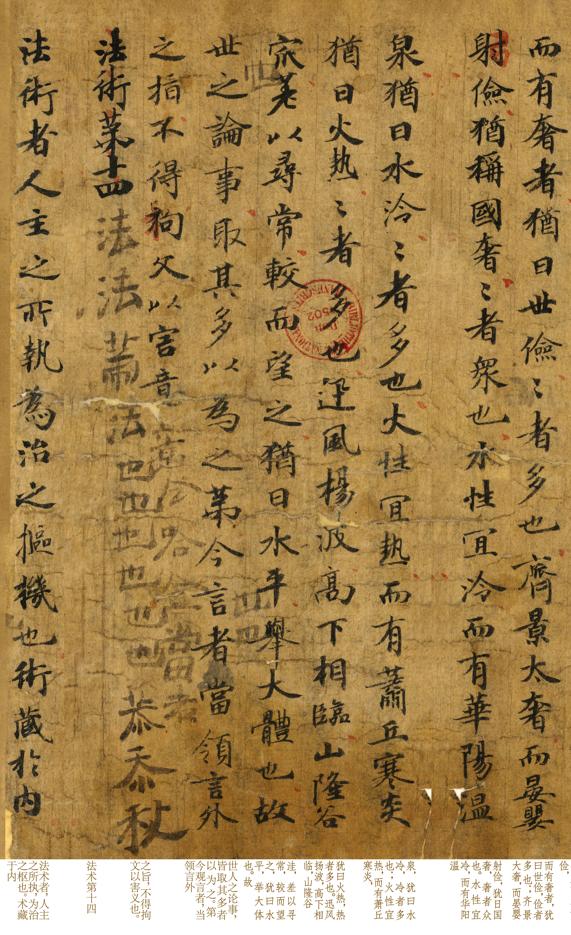 而有奢者猶曰世儉〻者多也齊景太奢而晏嬰
射儉猶稱國奢〻者衆也水性冝泠而有華陽溫
泉猶曰水泠〻者多也火性冝熱而有蕭丘寒炎
猶曰火热〻者多也迅風楊波高下相臨山隆谷
窊差以尋常較而望之猶曰水平舉大體也故
世之論事取其多以為之苐今言者當領言外
之指不得拘文以害意
法術苐十四
法術者人主之所執為治之樞機也術藏於内
法法
法也也也也也也
恭忝秋
俭,
而有奢者,犹
曰世俭,俭者
多也;齐景
大奢,而晏婴
射俭,犹曰国
奢,奢者众
也。水性宜
冷,而有华阳
温
泉,犹曰水
冷,冷者多
也;火性宜
热,而有萧丘
寒炎,
犹曰火热,热
者多也。迅风
扬波,高下相
临,山隆谷
洼,差以寻
常,较而望
之,犹曰水
平,举大体
也。故
世人之论事,
皆取其多者
以为之第,
今观言者,当
领言外
之旨,不得拘
文以害义也。
法术第十四
法术者,人主
之所执,为治
之枢也。术藏
于内